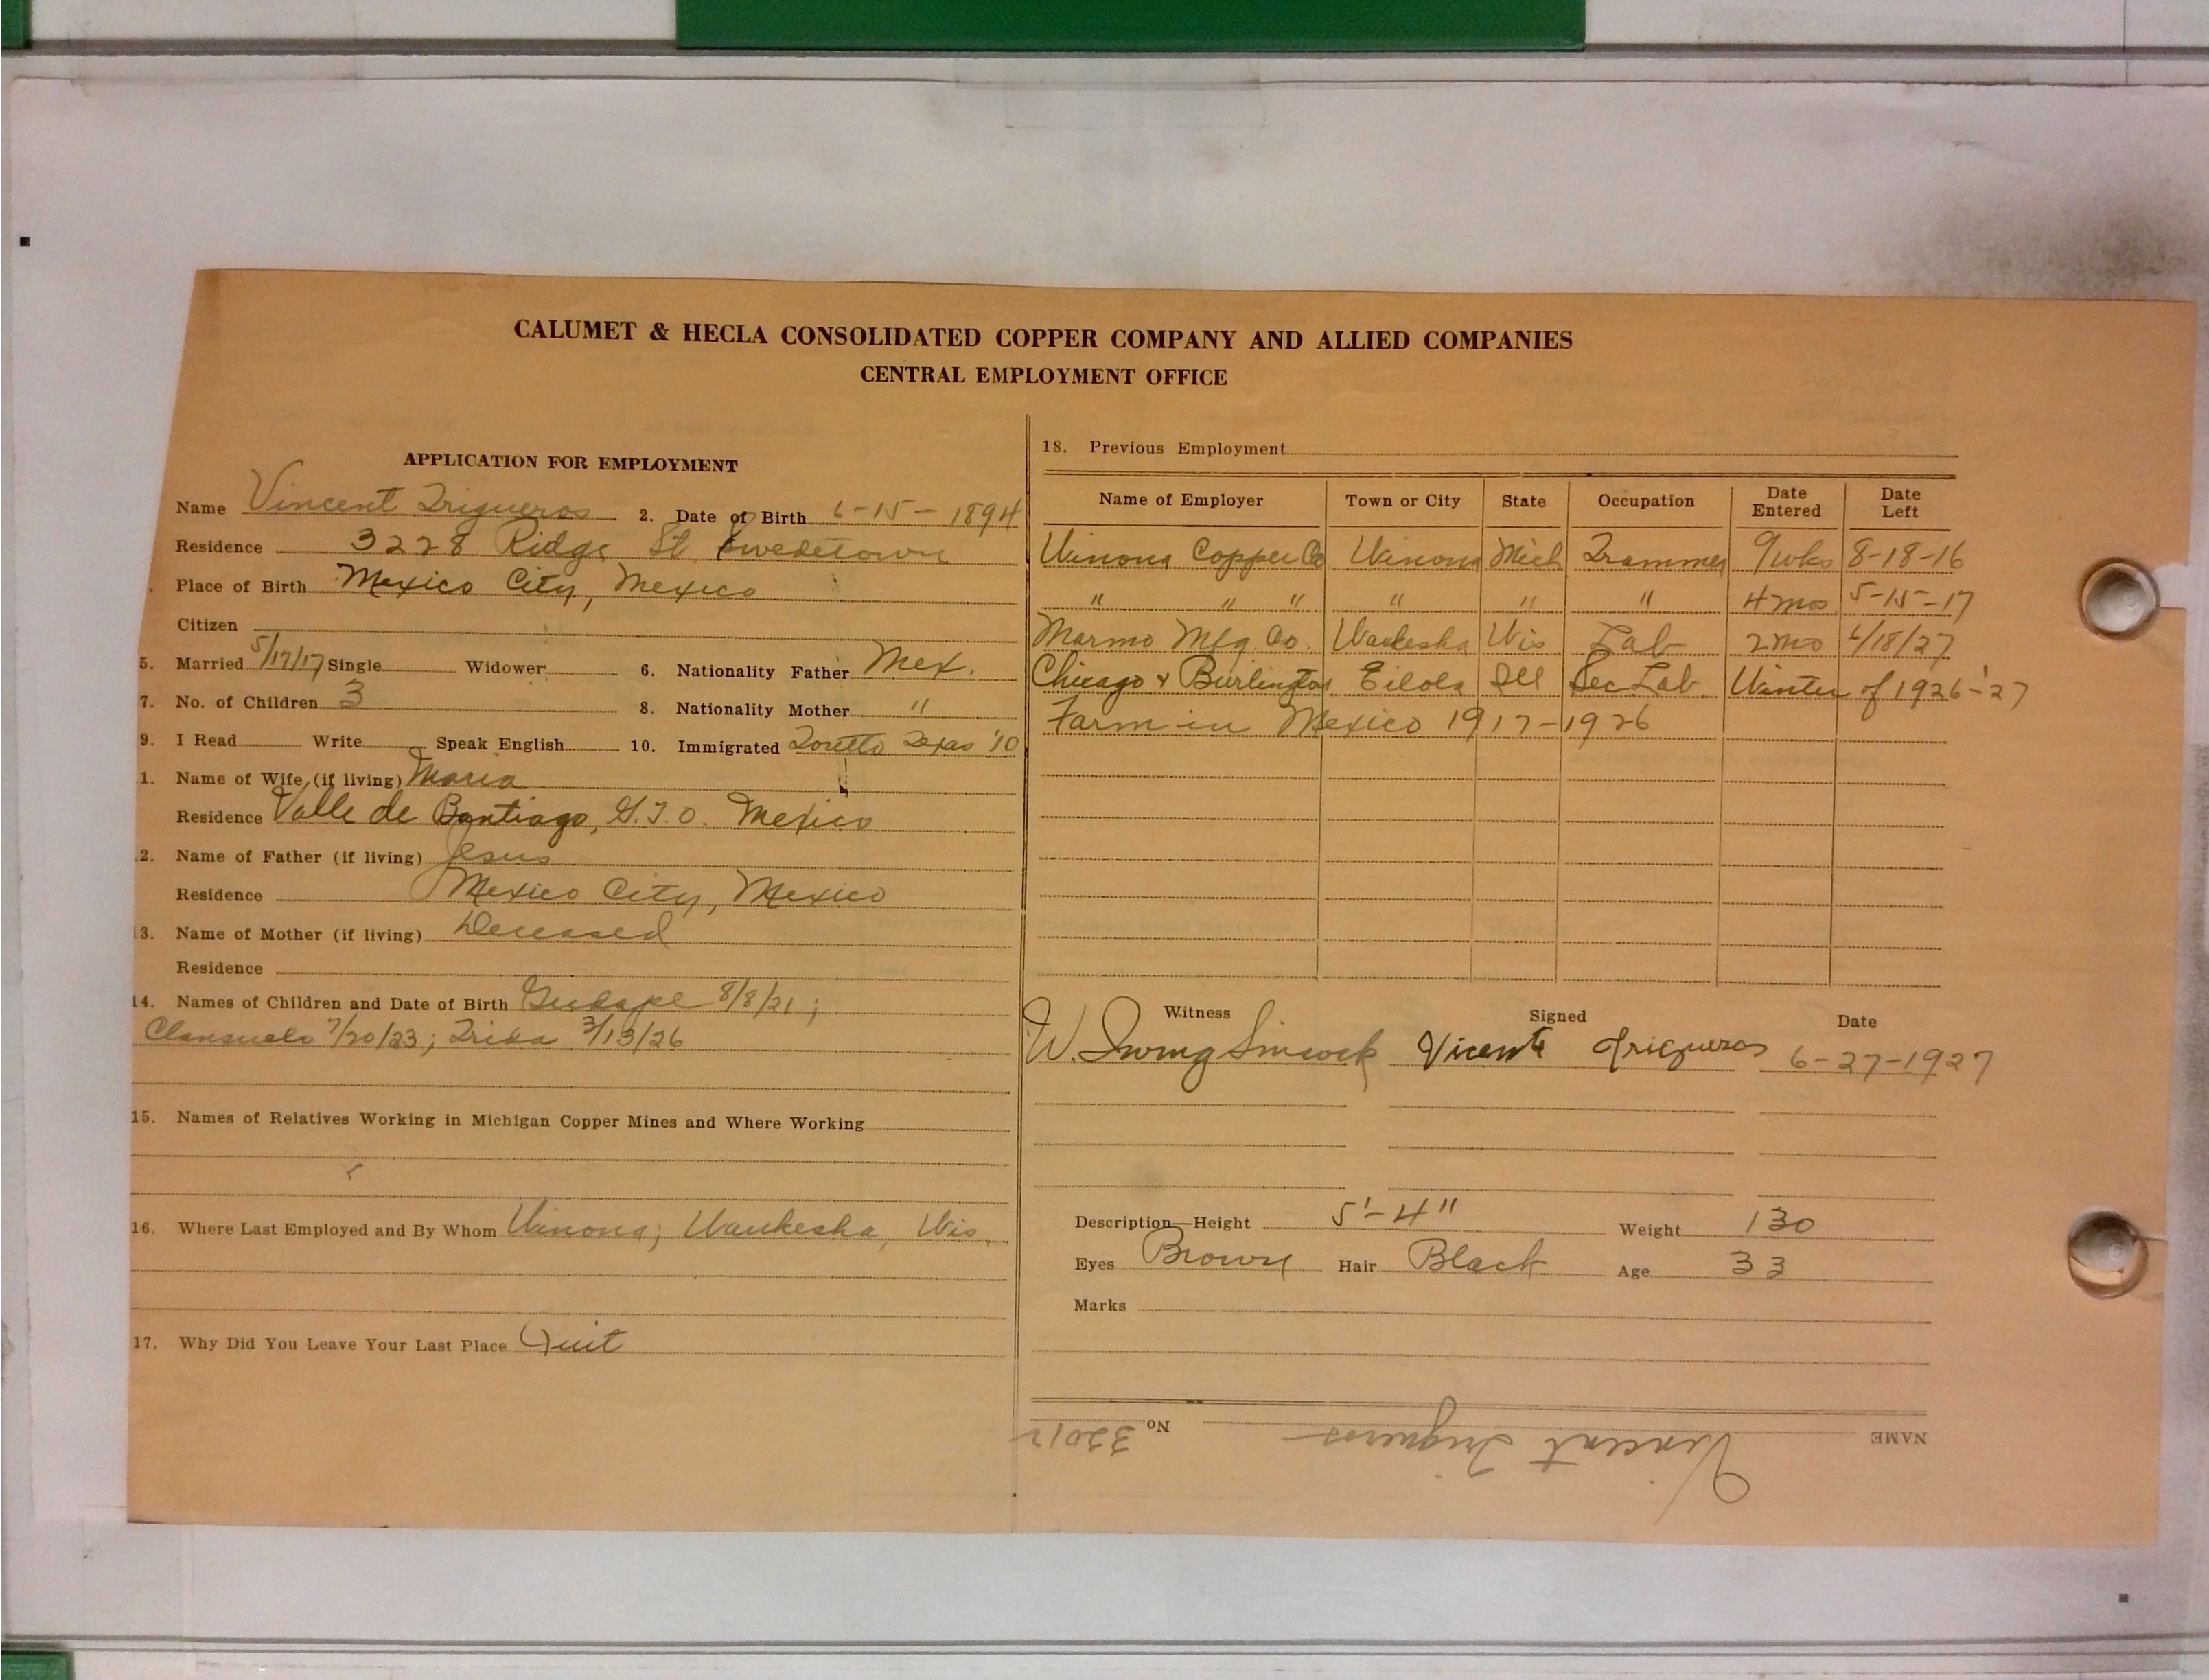 CALUMET & HECLA CONSOLIDATED COPPER COMPANY AND ALLIED COMPANIES
CENTRAL EMPLOYMENT OFFICE
APPLICATION FOR EMPLOYMENT
Name Vincent Trigueros 2. Date of Birth 6-15-1894
Residence 3228 Ridge St Swedetown
Place of Birth Mexico City, Mexico
Citizen
5. Married 5/17/17 Single Widower 6. Nationality Father Mex.
7. No. of Children 3 8. Nationality Mother "
9. I Read Write Speak English 10. Immigrated Texas '10
1. Name of Wife (if living) Maria
Residence Valle de Santiago, G.T.O. Mexico
2. Name of Father (if living) Jesus
Residence Mexico City, Mexico
13. Name of Mother (if living) Deceased
Residence
14. Names of Children and Date of Birth 8/8/21;
7/20/23; 3/13/26
15. Names of Relatives Working in Michigan Copper Mines and Where Working
16. Where Last Employed and By Whom Winona; Waukesha, Wis.
17. Why Did You Leave Your Last Place Quit
18. Previous Employment
Name of Employer Town or City State Occupation Date Entered Date Left
Winona Copper Co Winona Mich Trammer 9wks 8-18-16
" " " " " " 4 mos 5-15-17
Marmo Mfg. Co. Waukesha Wis Lab 2 mo /18/27
Chicago & Burlington Eilola Ill Sec Lab. Winter of 1926-'27
Farm in Mexico 1917-1926
Witness Signed Date
W. Irving Simcock Vicente Trigueros 6-27-1927
Description—Height 5'-4" Weight 130
Eyes Brown Hair Black Age 33
Marks
NAME Vincent Trigueros No. 33012